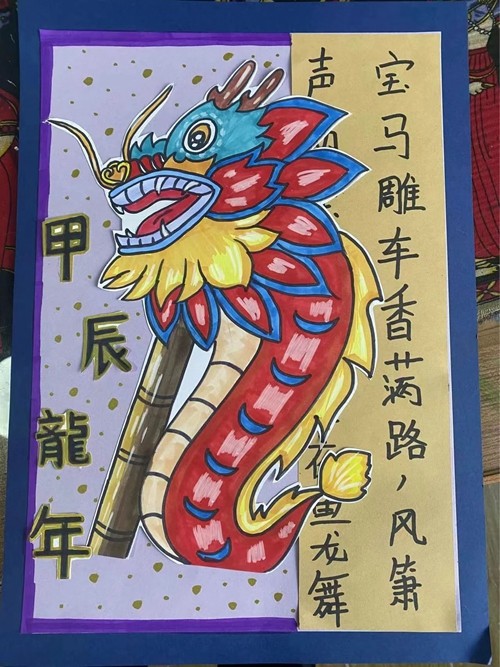 宝马雕车香满路，风箫
声夜鱼龙舞
甲辰龍年